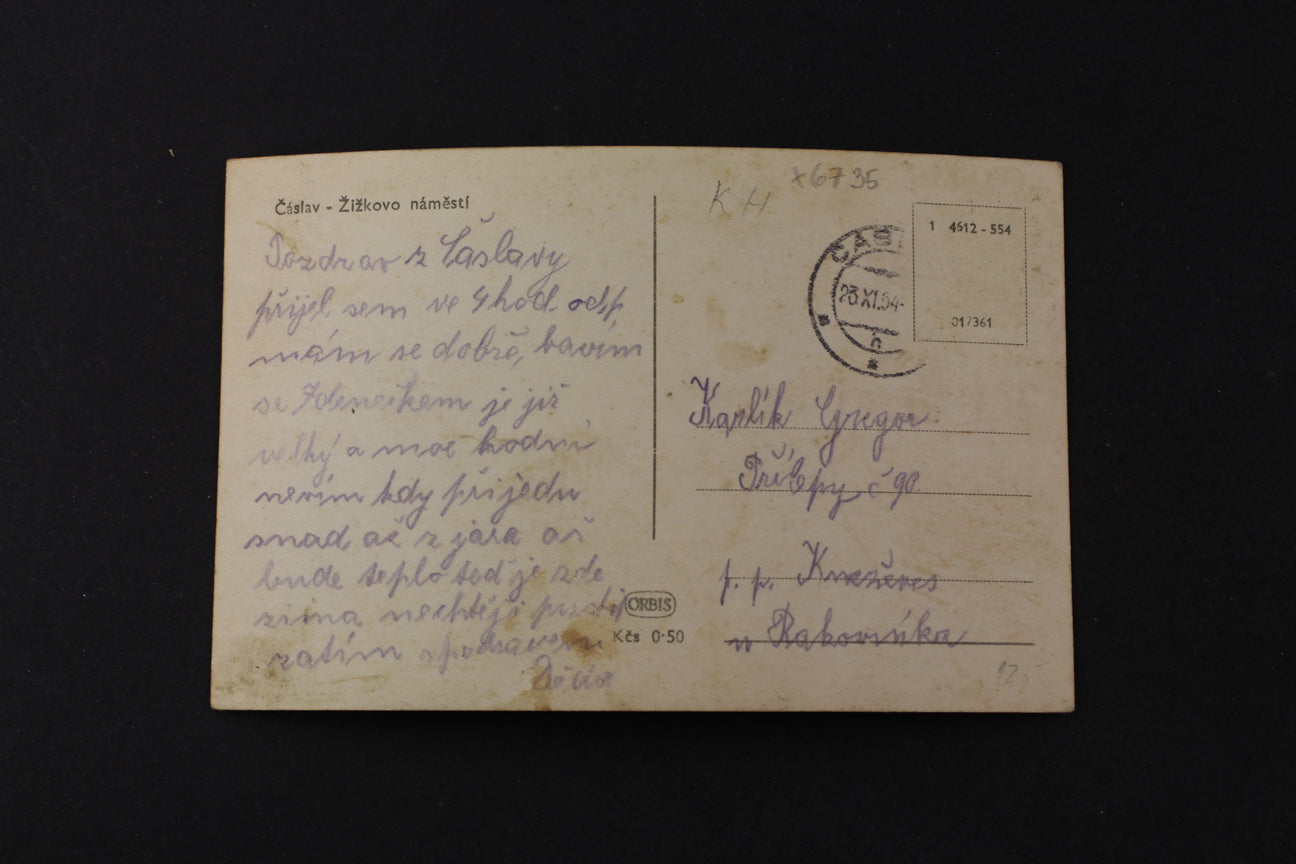 Čáslav - Žižkovo náměstí
Pozdrav z Čáslavy
přijel sem ve 4 hod odp.
mám se dobře, bavím
se Zdeneckem je již
velký a moc hodni
nevím kdy přijedu
snad až z jara až
bude teplo teď je zde
zima nechtěji pustit
zatím spozdravem
Děda
ORBIS
Kčs 0·50
KH
x6735
ČÁS
23.XI.54-
1 4612 - 554
017361
Karlík Gregor
Přílepy č 90
p. p. Kneževes
u Rakovníka
12,-